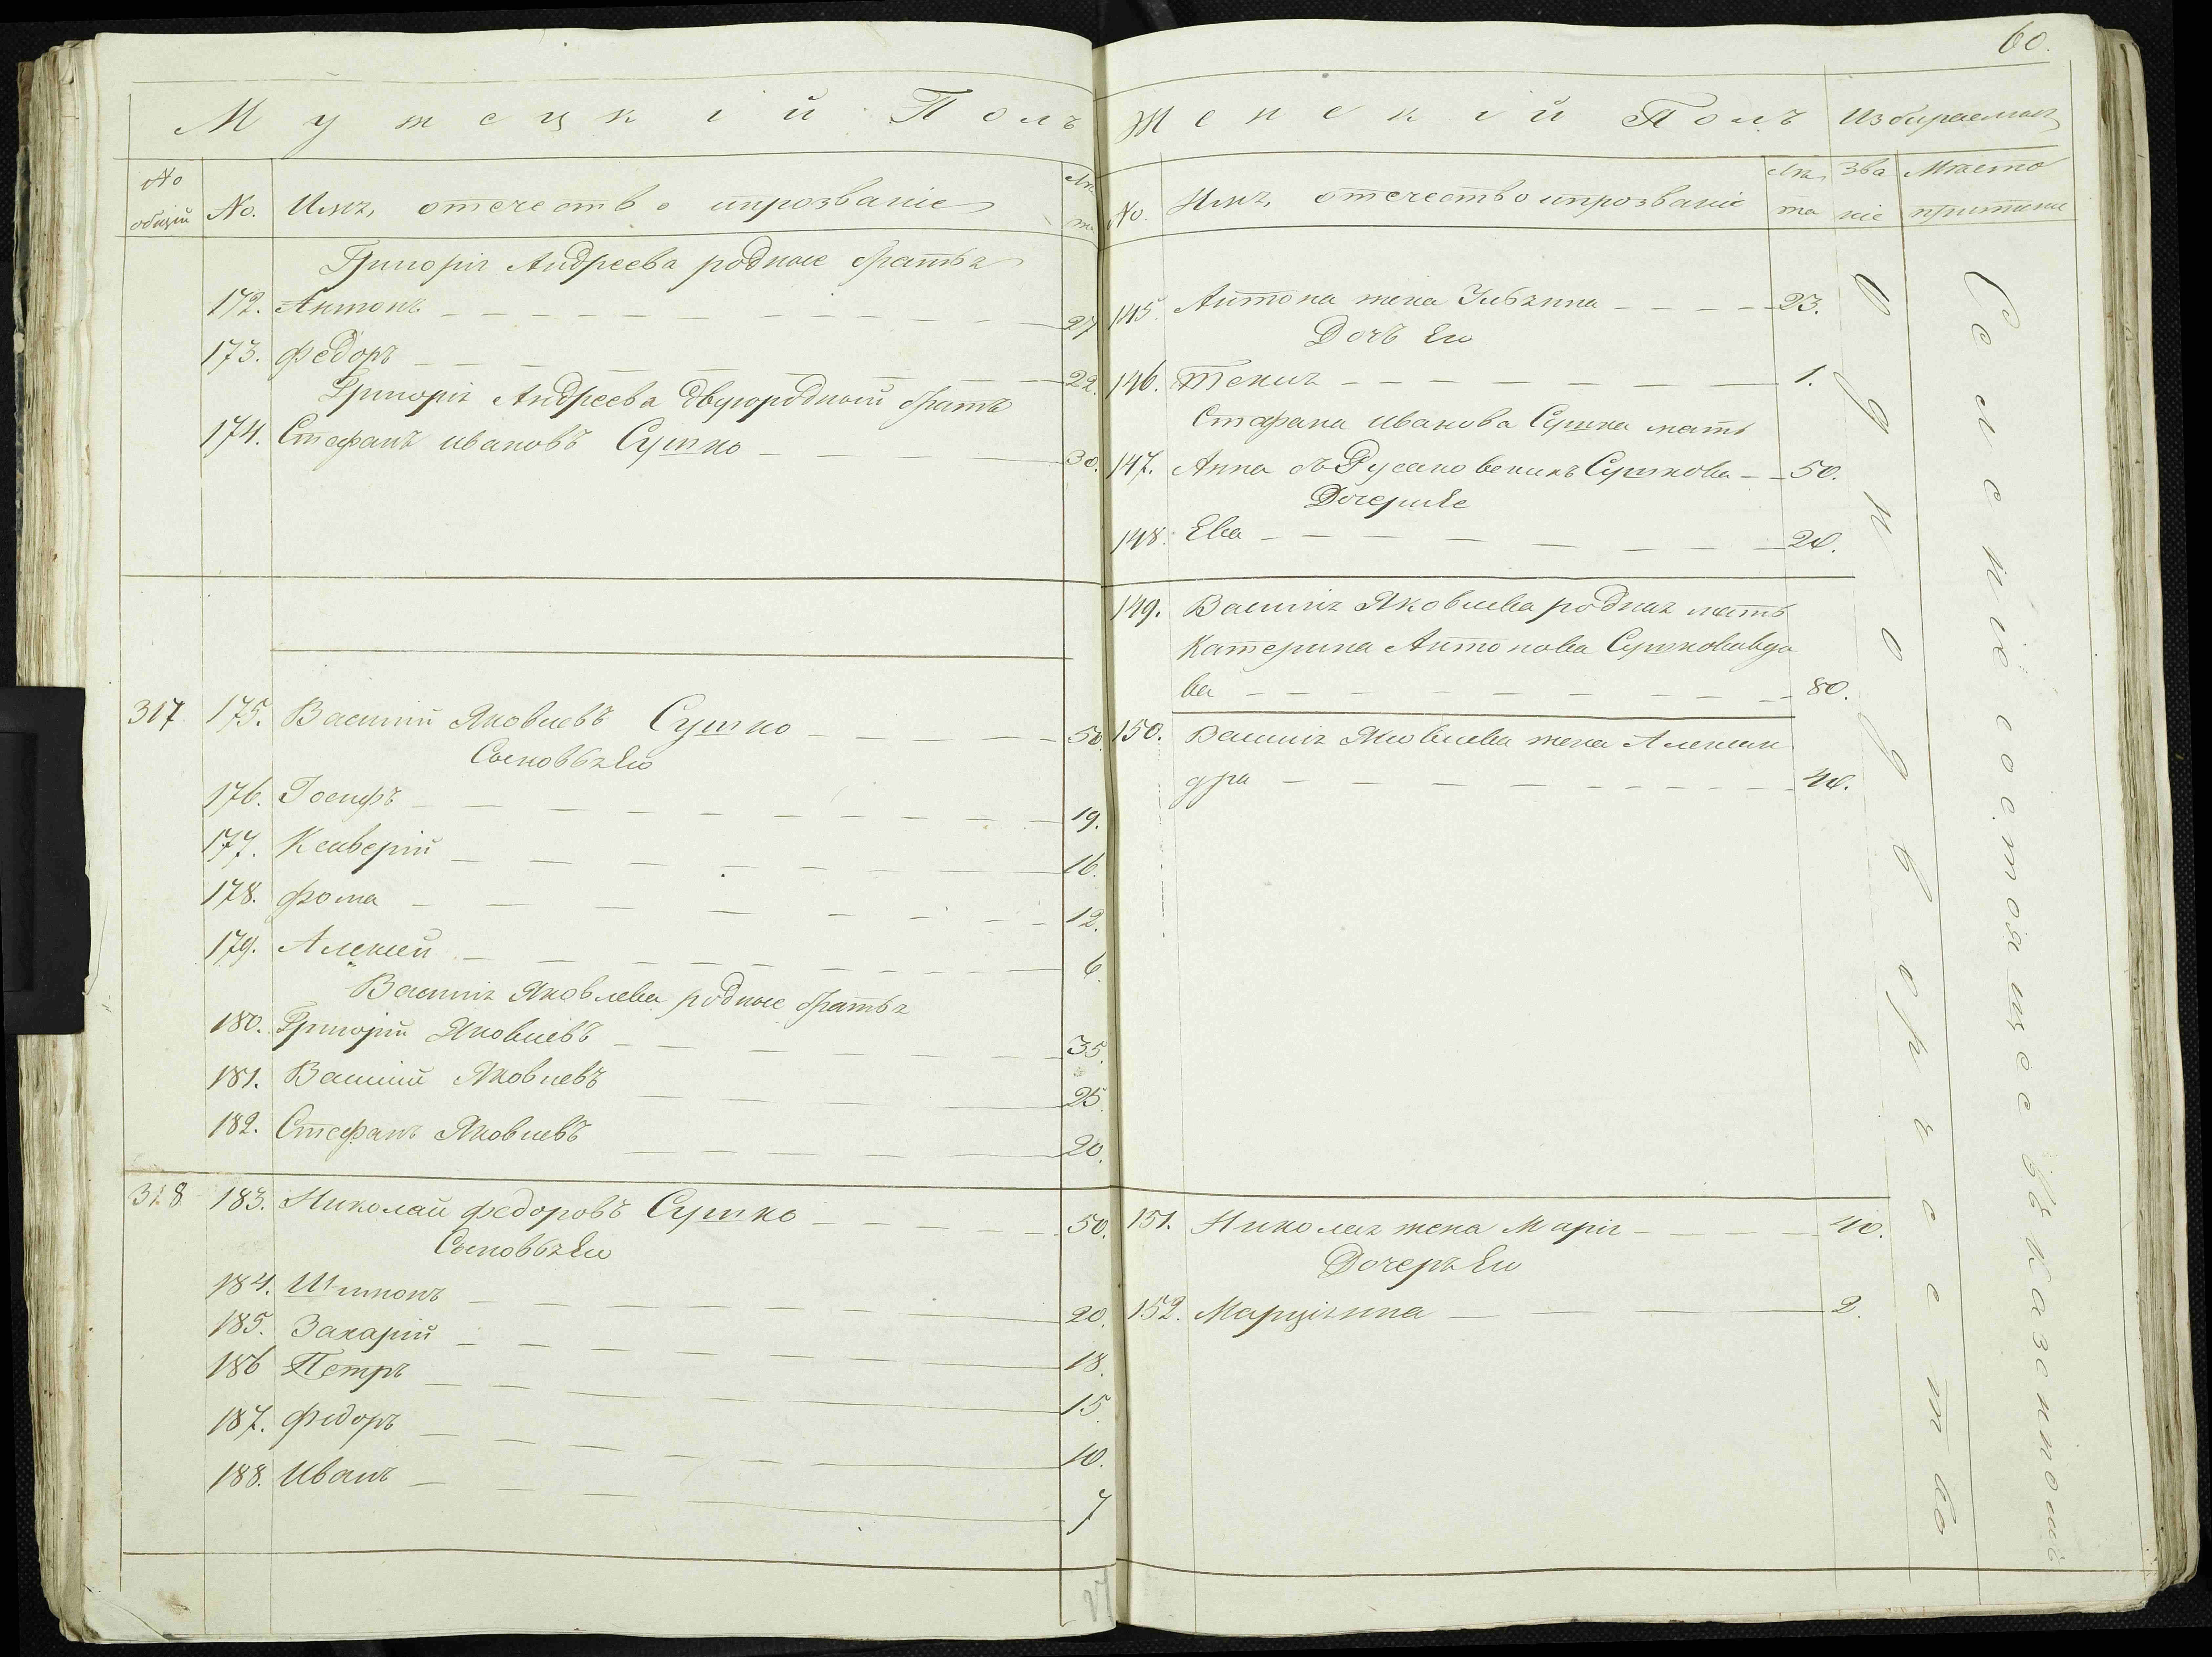 60.
Мужескій Полъ
№ общій
№.
Имя, отечество и прозваніе
Лѣта
Григорія Андреева родные братья
172. Антонъ 27
173. Федоръ 22.
Григорія Андреева двуюродный братъ
174. Стефанъ Ивановъ Сушко 30.
317 175. Василій Яковлевъ Сушко 50.
Сыновья Его
176. Іосифъ 19.
177. Ксаверій 16.
178. Фома 12.
179. Алексей 6.
Василія Яковлева родные братья
180. Григорій Яковлевъ 35.
181. Василій Яковлевъ 25.
182. Стефанъ Яковлевъ 20.
318 183. Николай Федоровъ Сушко 50.
Сыновья Его
184. Шимонъ 20.
185. Захарій 18.
186 Петръ 15.
187. Федоръ 10.
188. Иванъ 7
Женскій Полъ
Избираемыя
№.
Имя, отечество и прозваніе
Лѣта
Званіе
Место
145. Антона жена Ульяна 23.
Дочь Его
146. Текля 1.
Стефана Иванова Сушка мать
147. Анна Сушкова 50.
Дочери Ее
148. Ева 20.
149. Василія Яковлева родная мать
Катерина Антонова Сушкова вдо
ва 80.
150. Василія Яковлева жена Алексан
дра 40.
151. Николая жена Марія 40.
Дочерь Его
152. Марціянна 2.
Однодворчество
Селеніе состоящее въ Казенномъ